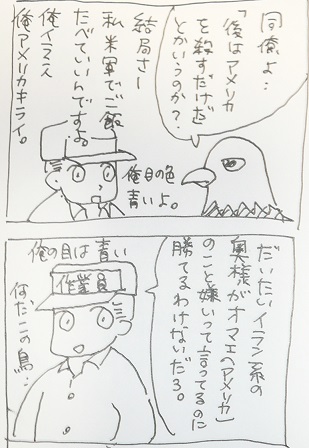 同僚よ…
「後はアメリカ
を殺すだけだ」
とかいうのか？
結局さー
私米軍でご飯
たべていいんですよ
俺イラン人
俺アメリカキライ。
俺目の色
青いよ。
だいたいイラン系の
奥様がオマエ(アメリカ)
のこと嫌いって言ってるのに
勝てるわけないだろ。
俺の目は青い
作業員
何だこの鳥…